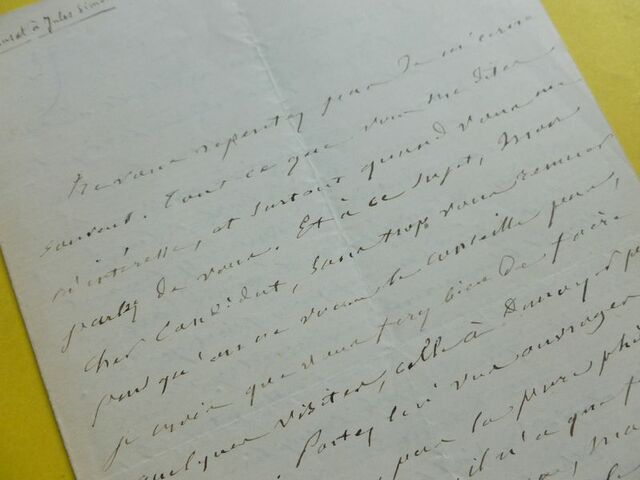 à Jules Simon
Ne vous repentez pas de m'écrire
souvent. Tout ce que vous me dites
m'intéresse, et surtout quand vous me
parlez de vous. Et à ce sujet, mon
cher Candidat, sans trop vous remuer
puisqu'on ne vous le conseille pas,
je crois que vous ferez bien de faire
quelques visites, celle à Damiron
Portez lui vos ouvrages
pas la pure
il n'a que